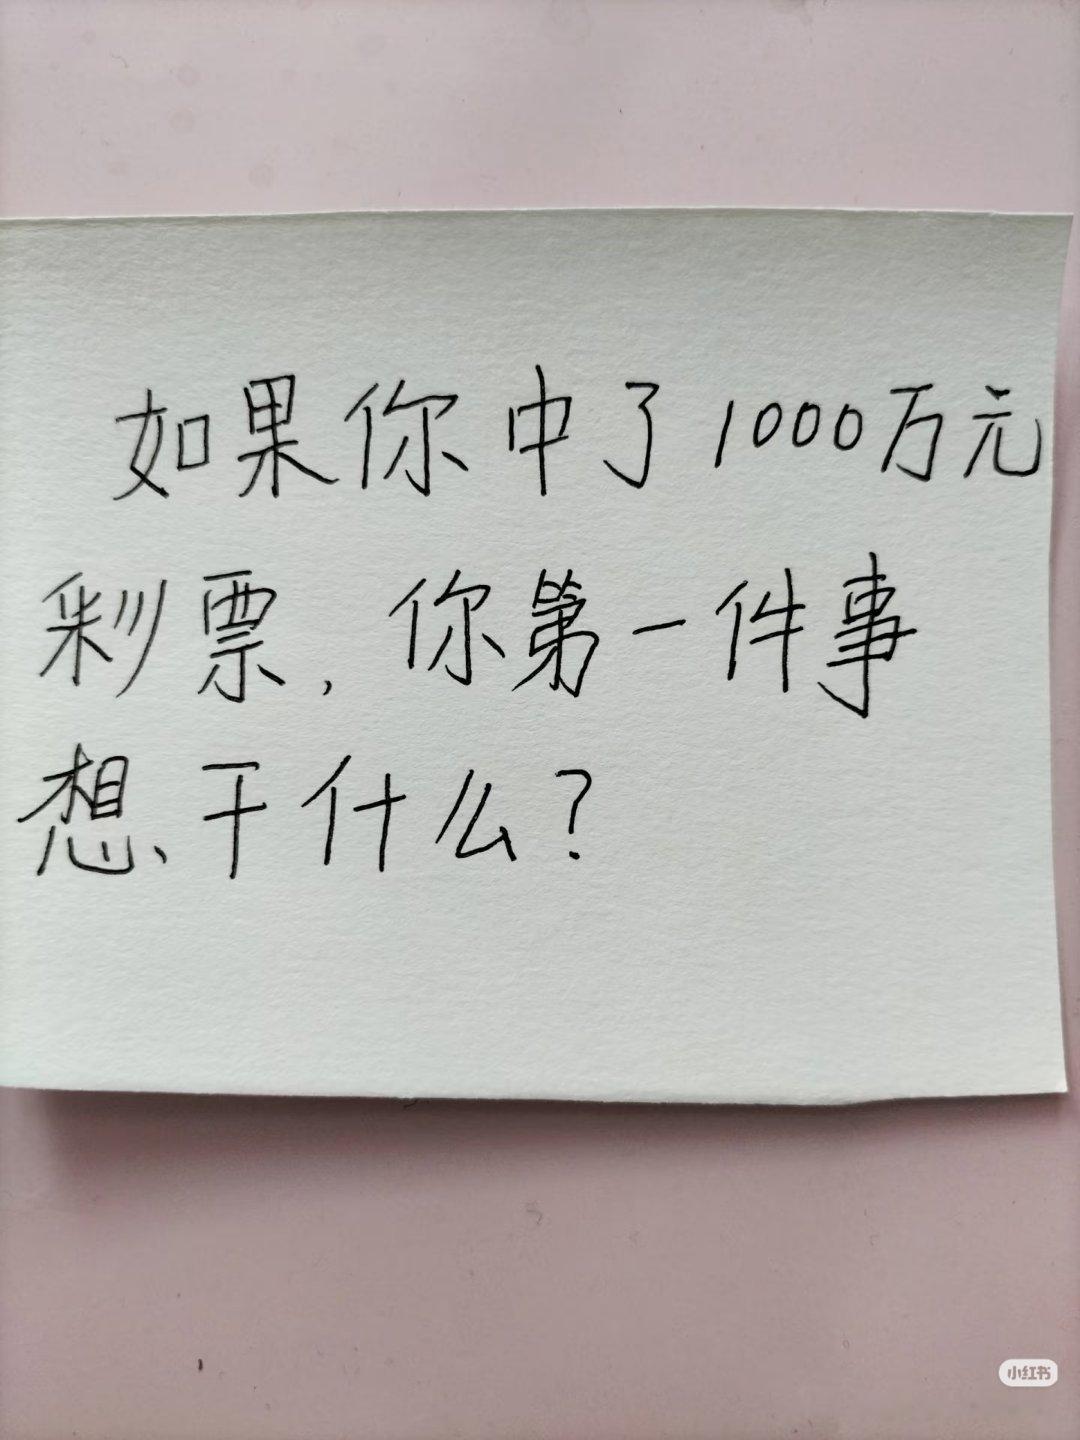 如果你中了1000万元
彩票,你第一件事
想干什么?
小红书